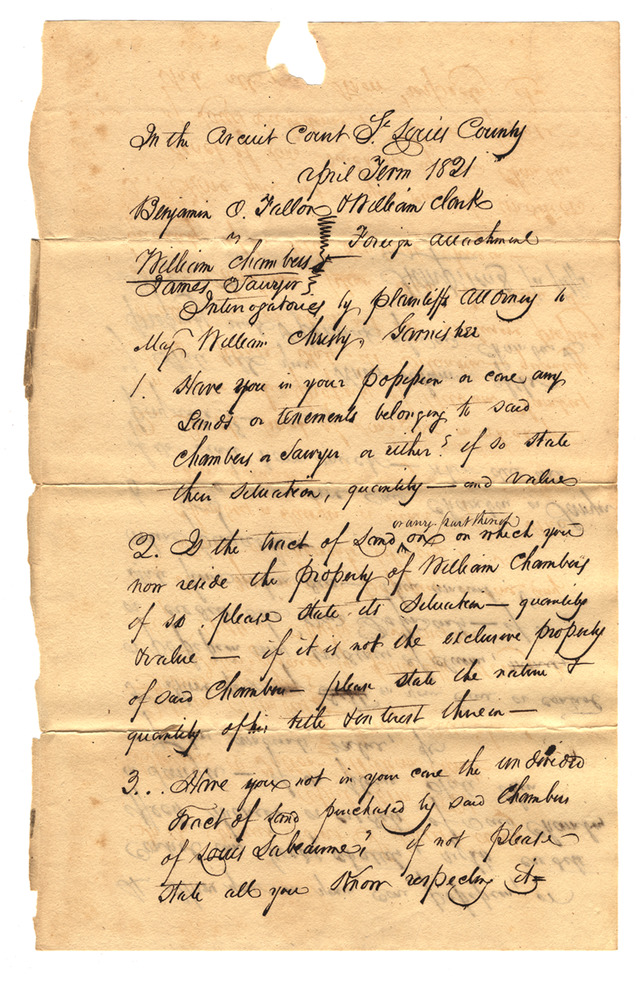 In the Circuit Court St Louis County
April Term 1821
Benjamin O. Fallon & William Clark
vs
Foreign attachment
William Chambers
James Sawyer
Interrogatories by plaintiffs attorney to
Maj William Christy, Garnishee
1. Have you in your possession or care any
Lands or tenements belonging to said
Chambers or Sawyer or either? if so state
their situation, quantity — and value
or any part thereof
2. Is the tract of Land on on which you
now reside the property of William Chambers
if so. please state its situation — quantity
& value — if it is not the exclusive property
of said Chambers — please state the nature &
quantity of his title & interest therein —
3... Have you not in your care the undivided
tract of Land purchased by said Chambers
of Louis Labeaume? if not please
state all you know respecting it —